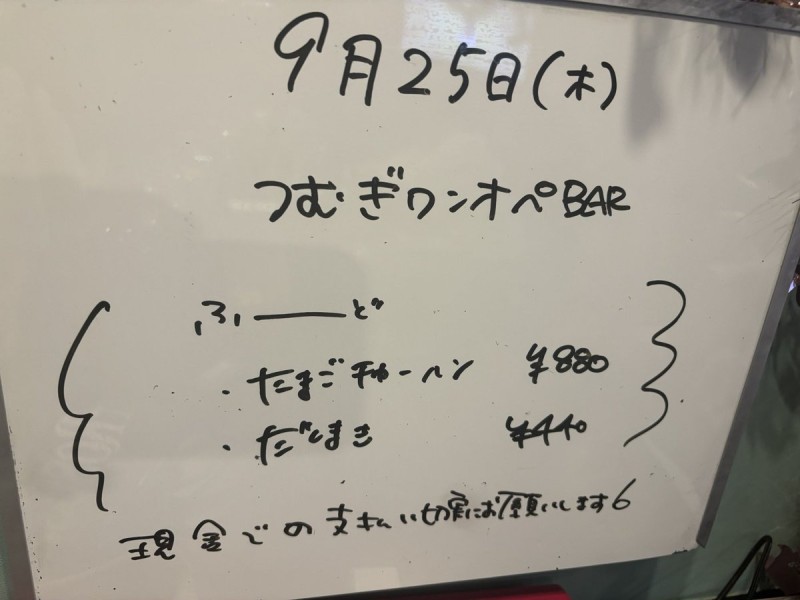 9月25日(木)
つむぎワンオペBAR
ふーど
・たまごチャーハン ¥880
・だしまき ¥440
現金での支払い切実にお願いします